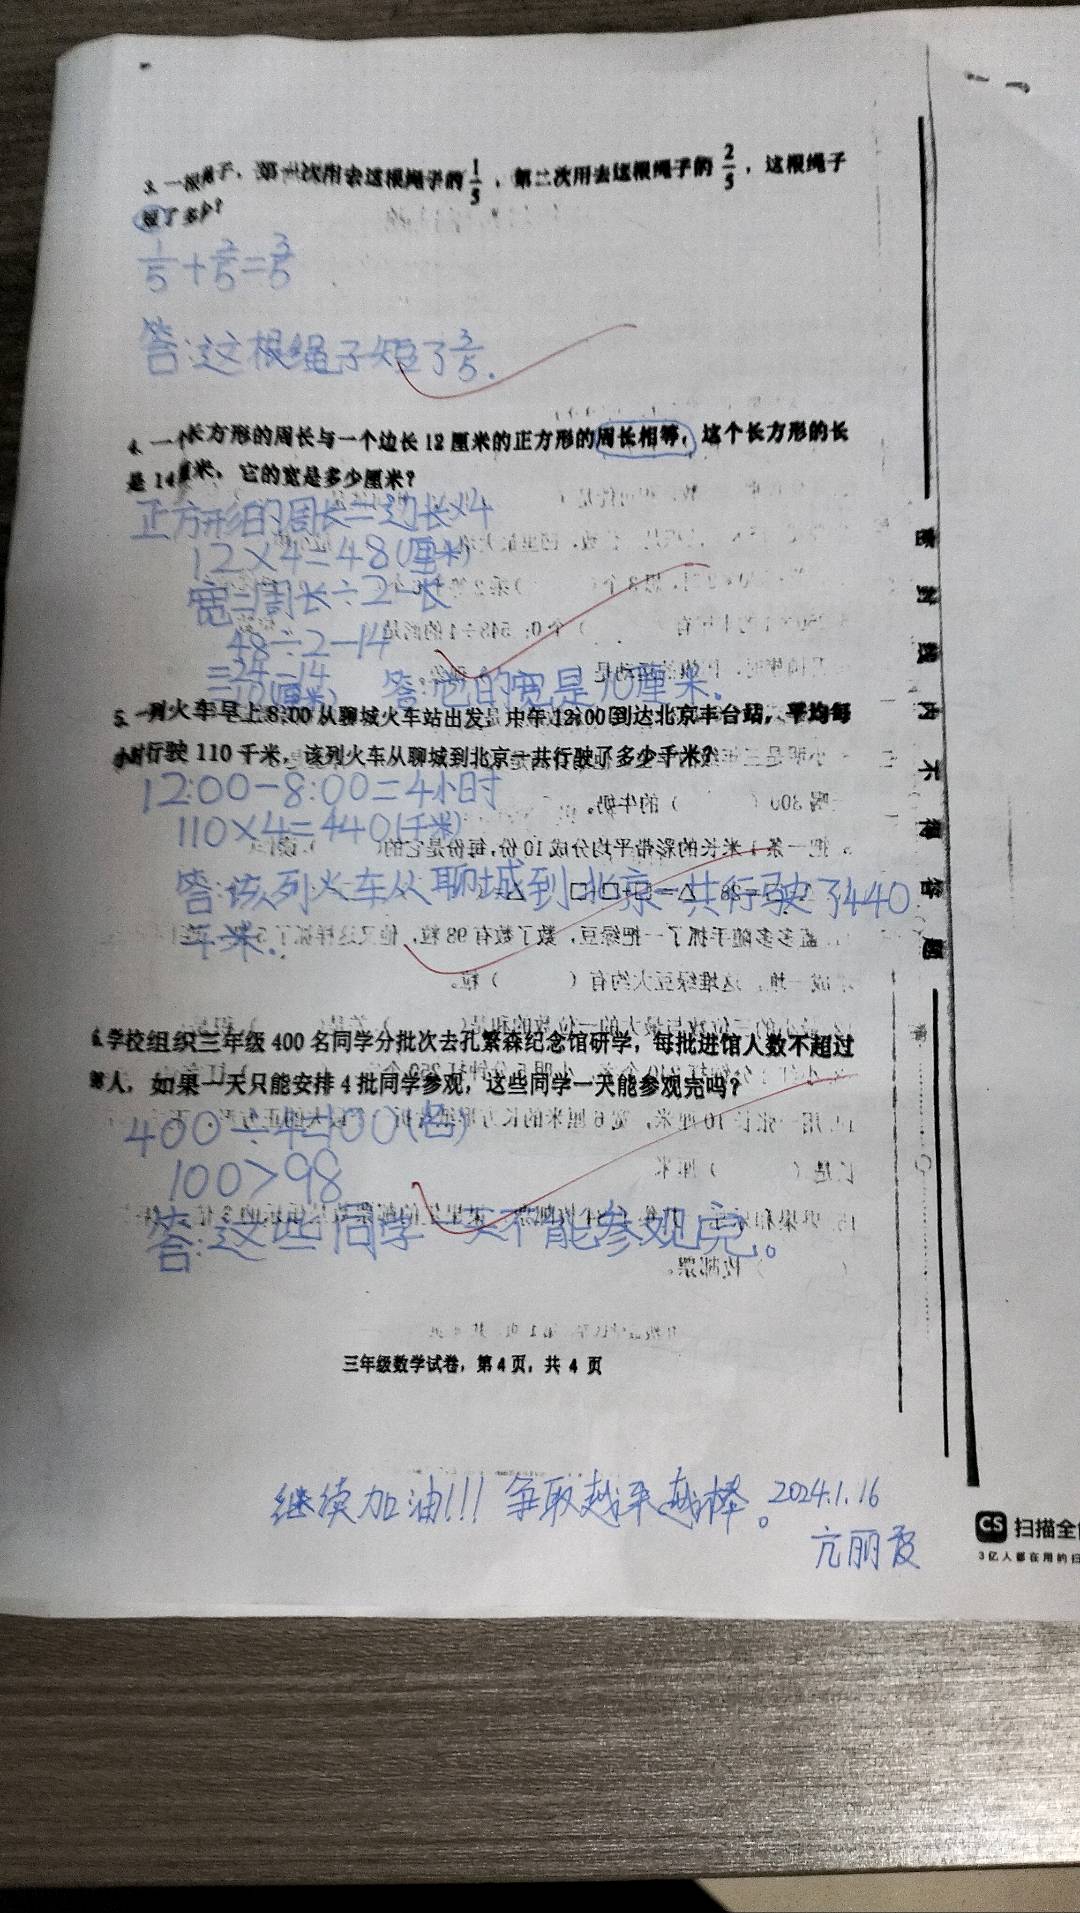 3. 一根绳子，第一次用去这根绳子的1/5，第二次用去这根绳子的2/5，这根绳子
短了多少？
1/5+2/5=3/5
答:这根绳子短了3/5.
4. 一个长方形的周长与一个边长12厘米的正方形的周长相等，这个长方形的长
是14厘米，它的宽是多少厘米？
正方形的周长=边长×4
12×4=48(厘米)
宽=周长÷2-长
48÷2-14
=24-14
=10(厘米) 答:它的宽是10厘米.
5. 一列火车早上8:00从聊城火车站出发，中午12:00到达北京丰台站，平均每
小时行驶110千米，该列火车从聊城到北京一共行驶了多少千米？
12:00-8:00=4小时
110×4=440(千米)
答:该列火车从聊城到北京一共行驶了440
千米.
6.学校组织三年级400名同学分批次去孔繁森纪念馆研学，每批进馆人数不超过
人，如果一天只能安排4批同学参观，这些同学一天能参观完吗？
400÷4=100(名)
100>98
答:这些同学一天不能参观完。
三年级数学试卷，第4页，共4页
继续加油!!! 争取越来越棒。2024.1.16
亢丽
密封线内不得答题
CS 扫描全
3亿人都在用的扫